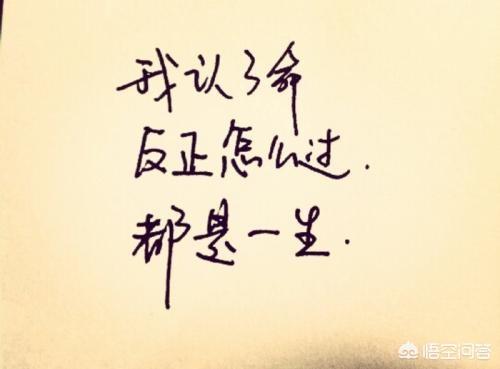 我认了命
反正怎么过.
都是一生.
悟空问答